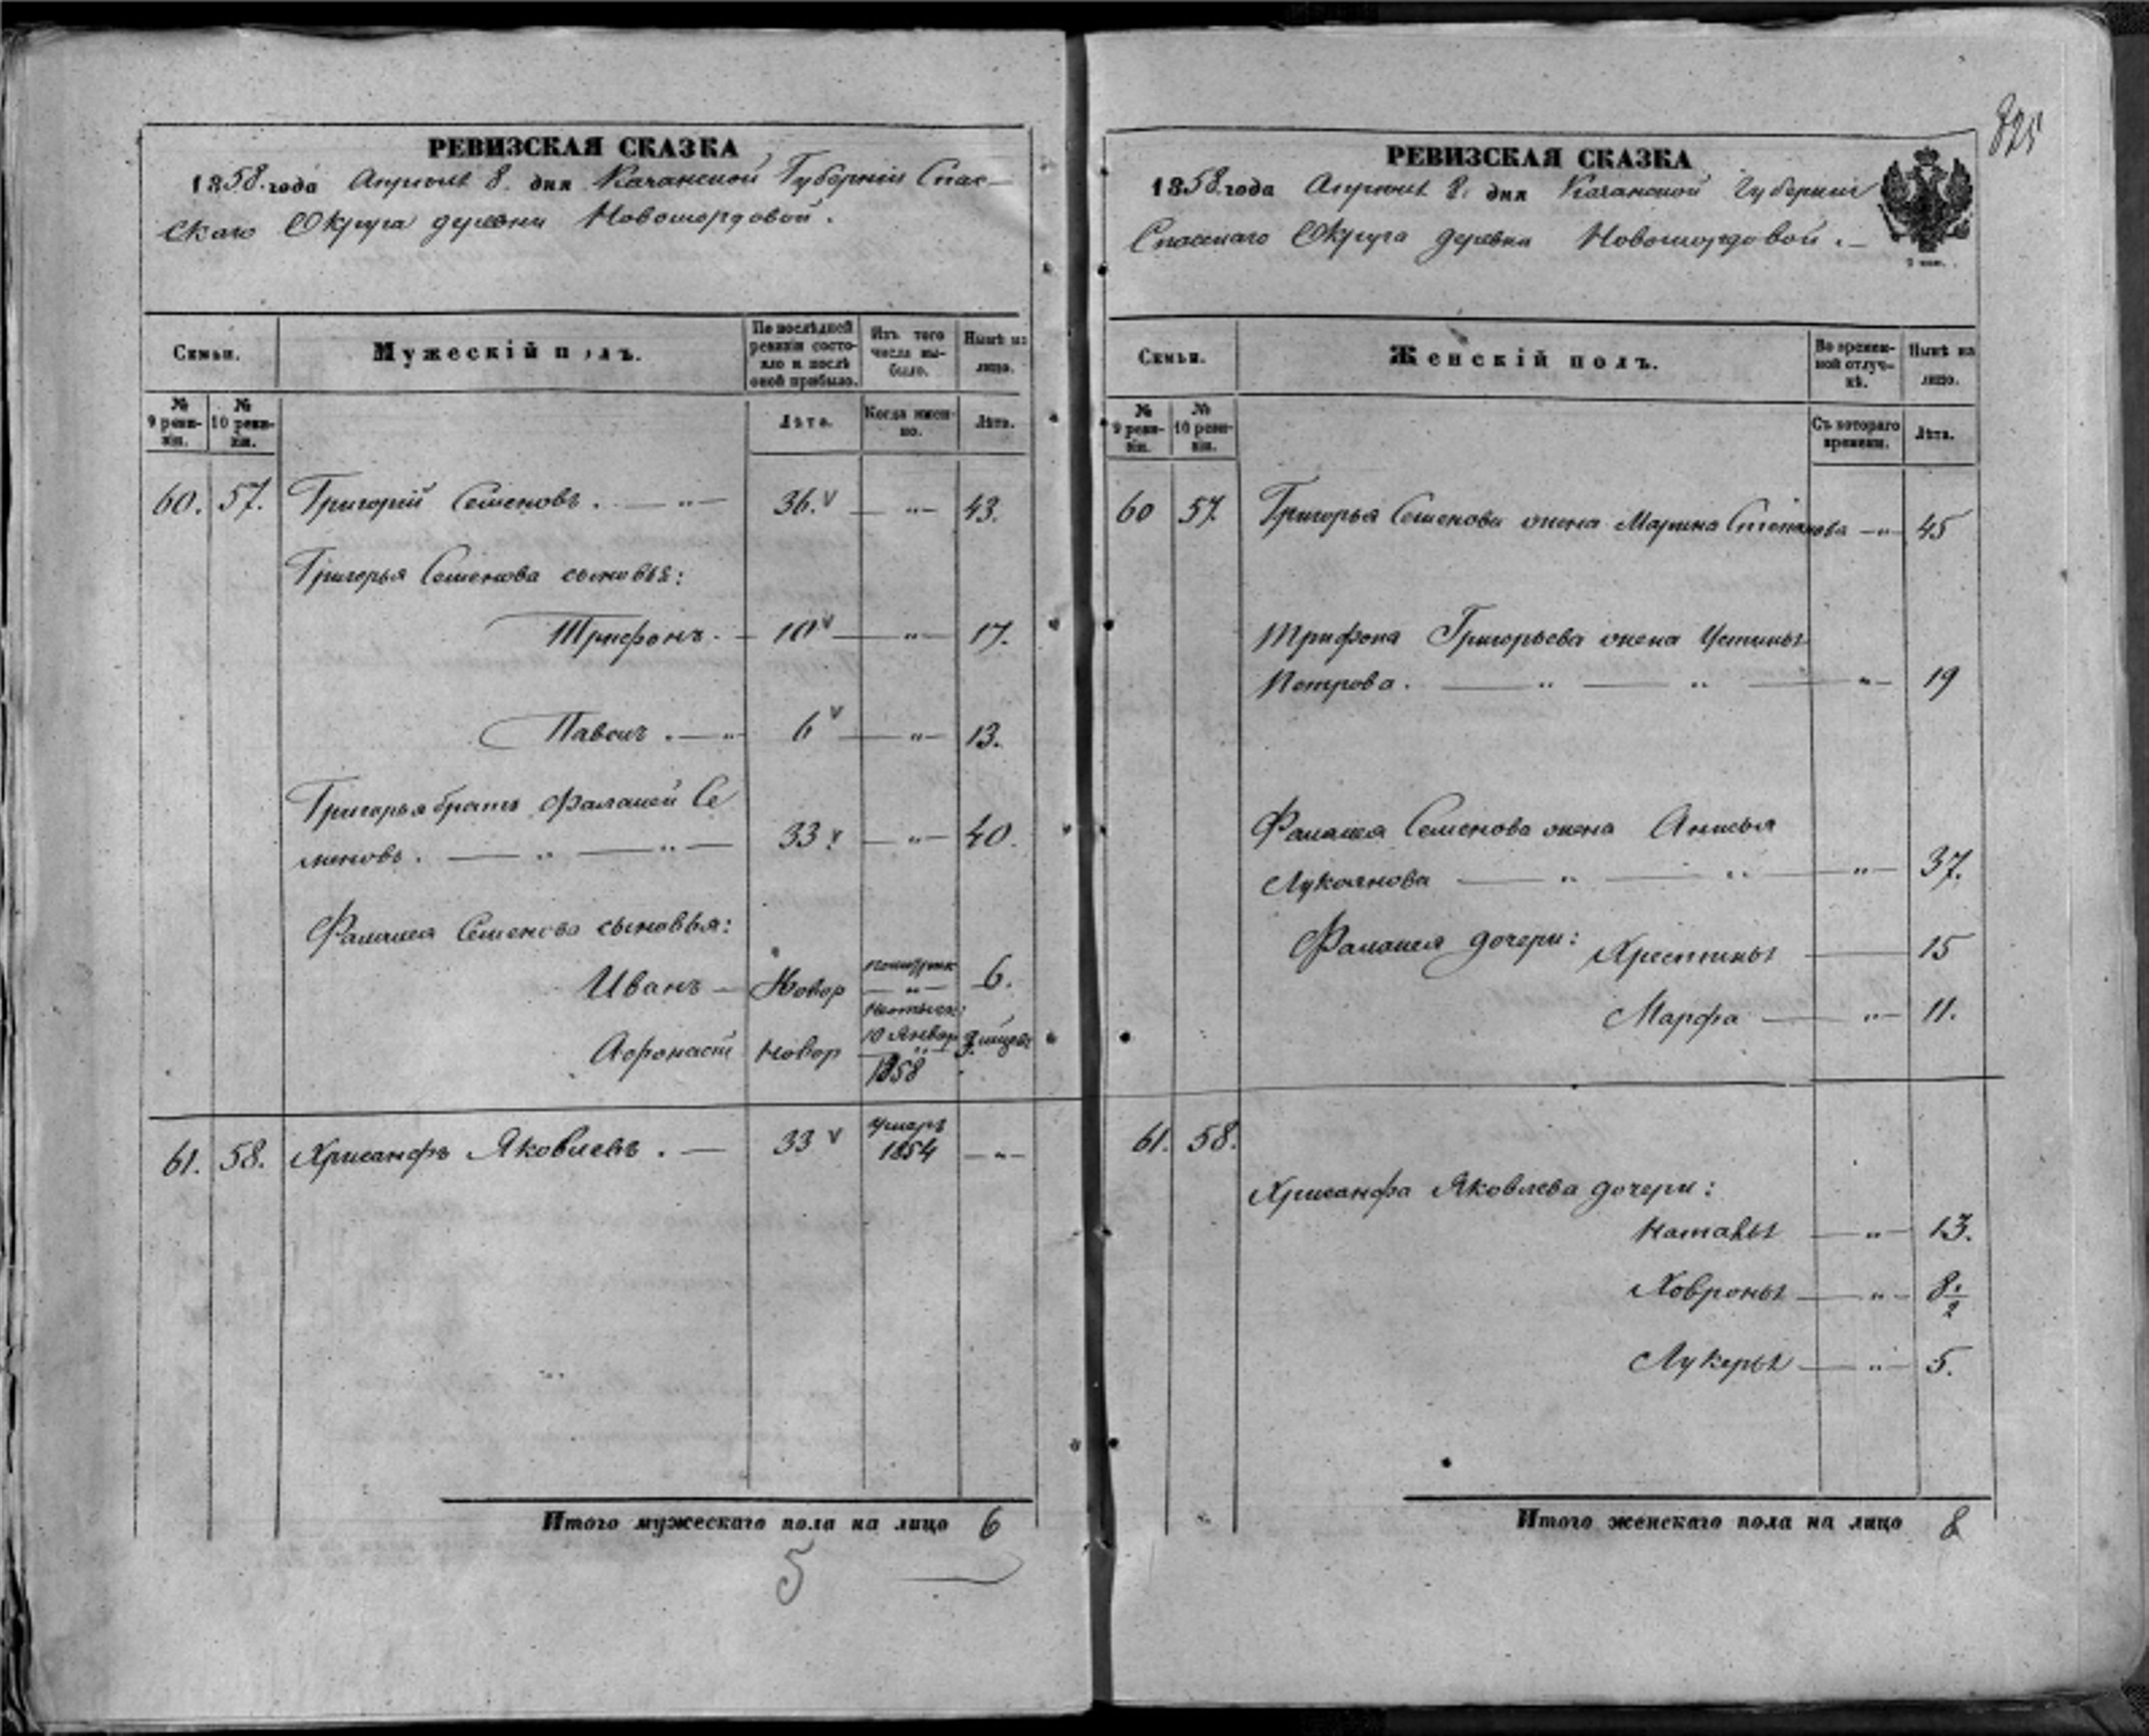 825
РЕВИЗСКАЯ СКАЗКА
1858 года Апреля 8 дня Казанской Губернии Спас-
скаго Округа деревни Новомордовой.
Семьи.
Мужескій полъ.
По послѣдней ревизіи состояло и послѣ оной прибыло.
Изъ того числа выбыло.
Нынѣ на лицо.
№ 9 ревизіи.
№ 10 ревизіи.
Лѣта.
Когда именно.
Лѣта.
60. 57. Григорій Семеновъ. — " — 36. — " — 43.
Григорья Семенова сыновья:
Трифонъ. — 10 — " — 17.
Павелъ. — " 6 — " — 13.
Григорья братъ Фалалей Се
меновъ. — " — " — 33 — " — 40.
Фалалея Семенова сыновья:
Иванъ — Новор — " — 6.
Афонасій Новор 10 Январ 1858
61. 58. Хрисанфъ Яковлевъ. — 33 умеръ 1854 — " —
Итого мужескаго пола на лицо 6
5
РЕВИЗСКАЯ СКАЗКА
1858 года Апреля 8 дня Казанской Губерніи
Спасскаго Округа деревни Новомордовой. —
Семьи.
Женскій полъ.
Во временной отлучкѣ.
Нынѣ на лицо.
№ 9 ревизіи.
№ 10 ревизіи.
Съ котораго времени.
Лѣта.
60 57. Григорья Семенова жена Марина Степанова — " — 45
Трифона Григорьева жена Устинья
Петрова. — " — " — " — 19
Фалалея Семенова жена Анисья
Лукоянова — " — " — " — 37.
Фалалея дочери: Хрестинья — 15
Марфа — " — 11.
61. 58.
Хрисанфа Яковлева дочери:
Наталья — " — 13.
Хавронья — " — 8 1/2
Лукерья — " — 5.
Итого женскаго пола на лицо 8